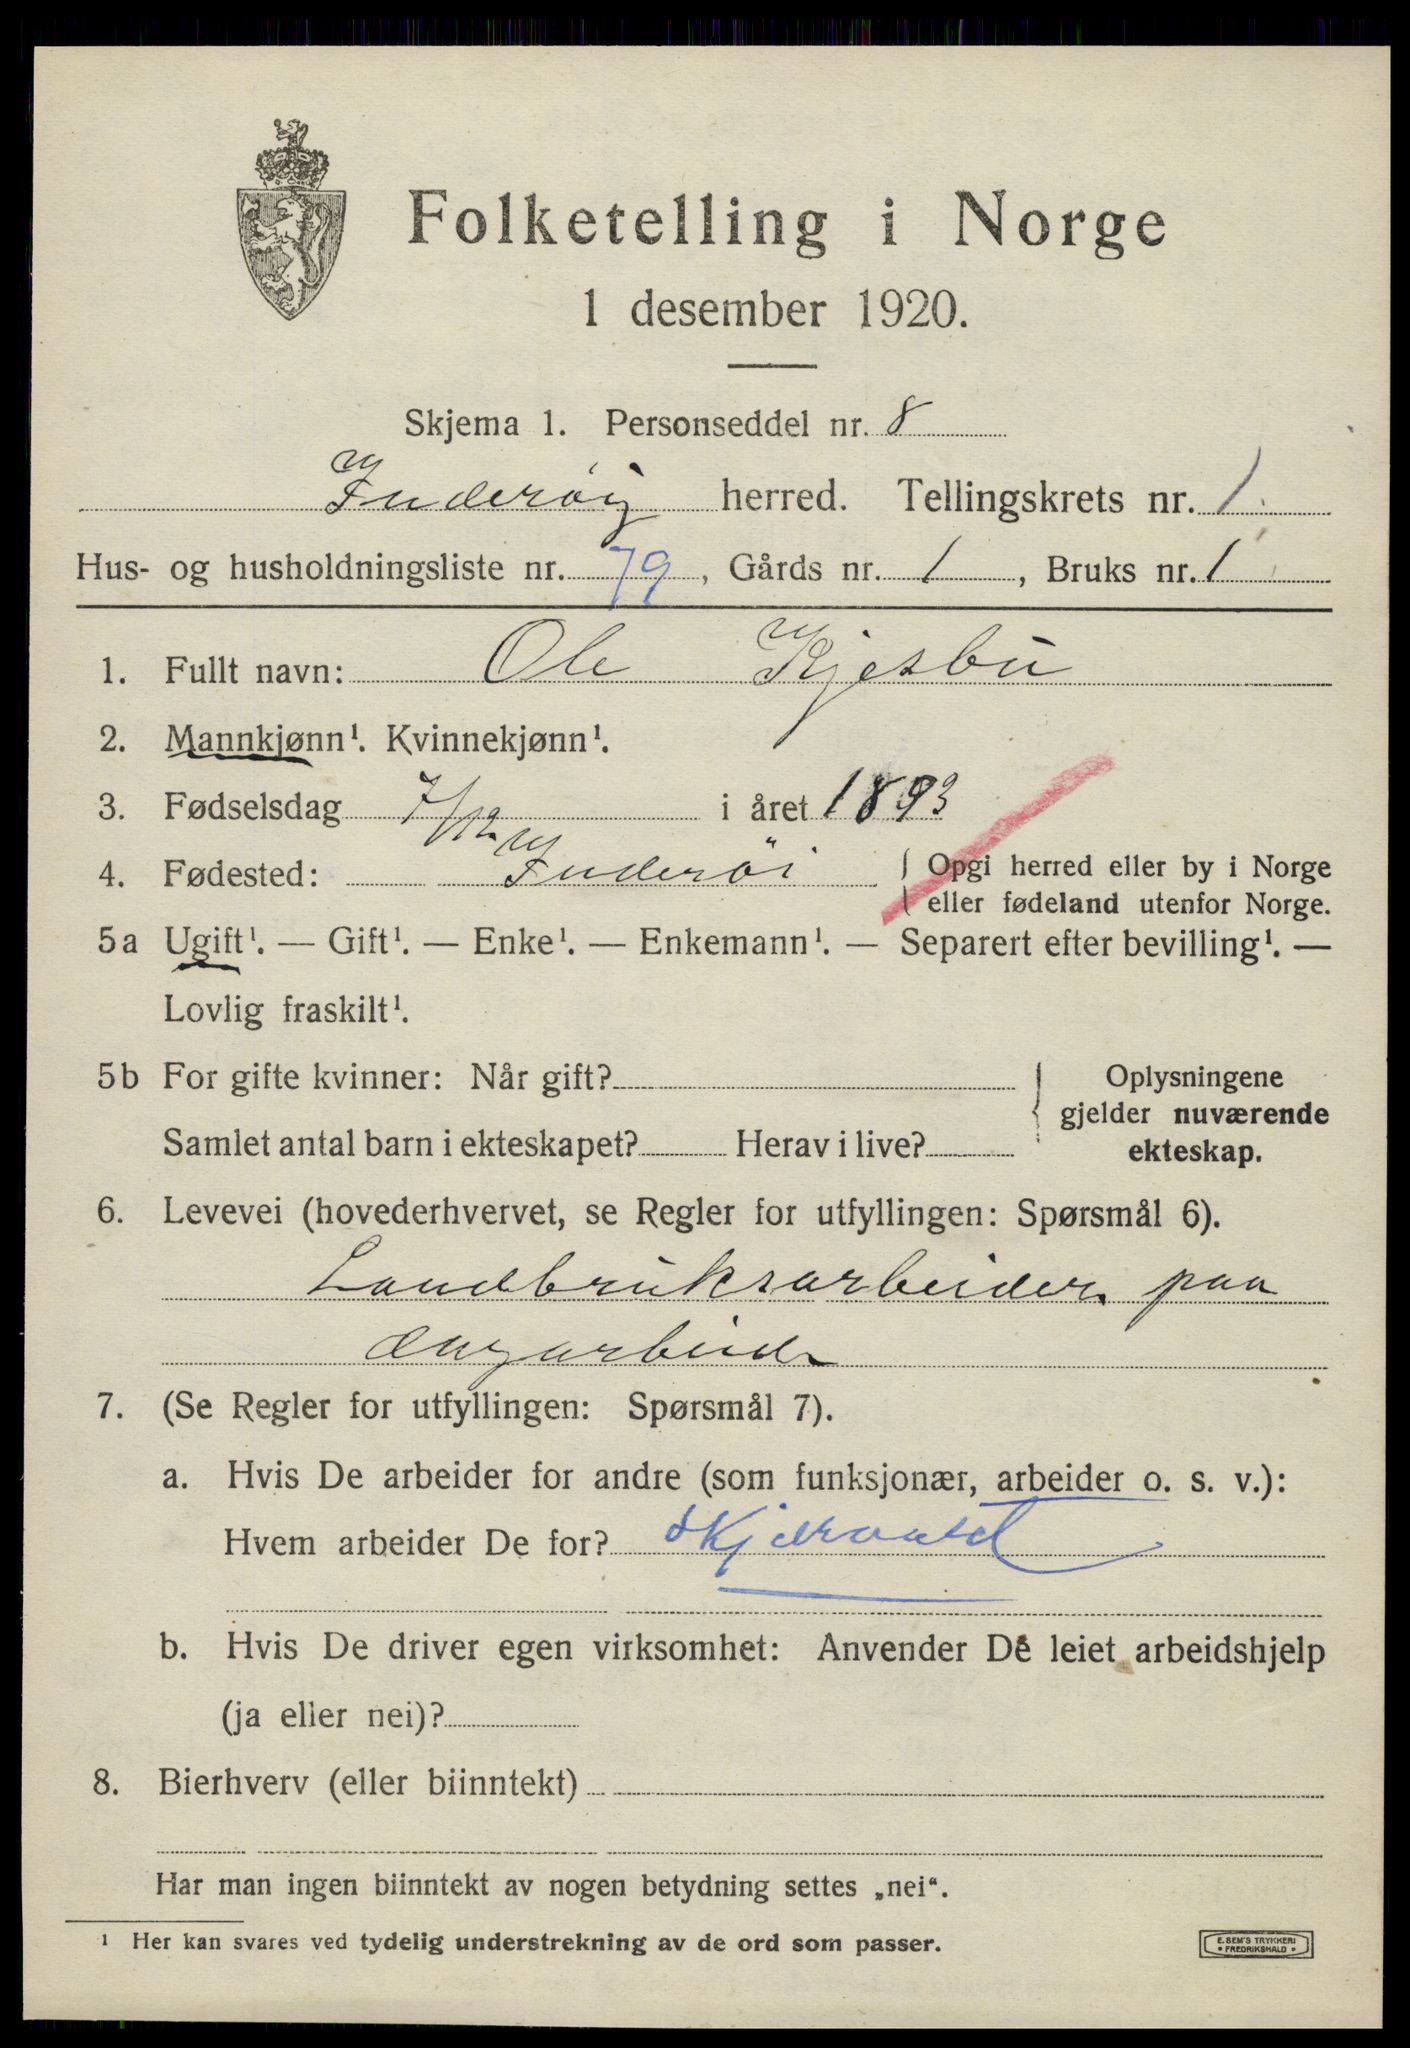 Folketelling i Norge
1 desember 1920.
Skjema 1. Personseddel nr. 8
Inderøy herred. Tellingskrets nr. 1.
Hus- og husholdningsliste nr. 79, Gårds nr. 1, Bruks nr. 1
1. Fullt navn: Ole Kjesbu
2. Mannkjønn¹. Kvinnekjønn¹.
3. Fødselsdag 7/12 i året 1893
4. Fødested: Inderøi { Opgi herred eller by i Norge
eller fødeland utenfor Norge.
5a Ugift¹. — Gift¹. — Enke¹. — Enkemann¹. — Separert efter bevilling¹. —
Lovlig fraskilt¹.
5b For gifte kvinner: Når gift?
Samlet antal barn i ekteskapet? Herav i live?
Oplysningene
gjelder nuværende
ekteskap.
6. Levevei (hovederhvervet, se Regler for utfyllingen: Spørsmål 6).
Landbruksarbeider paa
dagarbeide
7. (Se Regler for utfyllingen: Spørsmål 7).
a. Hvis De arbeider for andre (som funksjonær, arbeider o. s. v.):
Hvem arbeider De for?
b. Hvis De driver egen virksomhet: Anvender De leiet arbeidshjelp
(ja eller nei)?
8. Bierhverv (eller biinntekt)
Har man ingen biinntekt av nogen betydning settes „nei“.
¹ Her kan svares ved tydelig understrekning av de ord som passer.
E. SEM'S TRYKKERI
• FREDRIKSHALD •